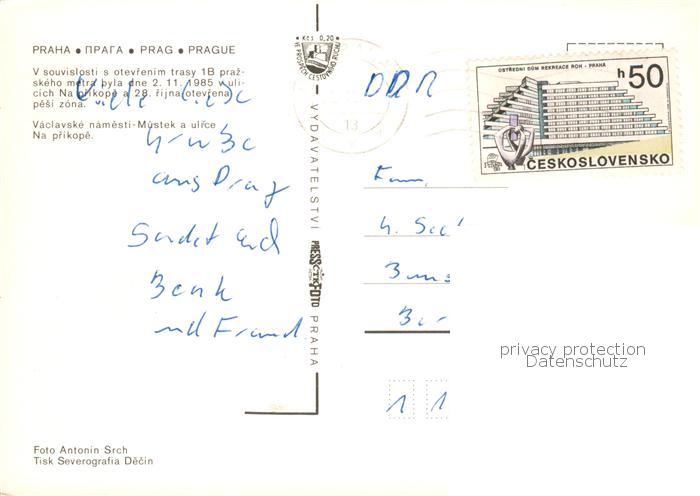 PRAHA • ПРАГА • PRAG • PRAGUE
V souvislosti s otevřením trasy 1B praž-
ského metra byla dne 2. 11. 1985 v uli-
cích Na příkopě a 28. října otevřena
pěší zóna.
Václavské náměstí-Můstek a ulice
Na příkopě.
Viele liebe
Grüße
aus Prag
Sendet Euch
und
Foto Antonín Srch
Tisk Severografia Děčín
Kčs 0,20
VE PROSPĚCH CESTOVNÍHO RUCHU
VYDAVATELSTVÍ PRESSFOTO PRAHA
13
DDR
Fam.
1 1
ÚSTŘEDNÍ DŮM REKREACE ROH - PRAHA
h50
ČESKOSLOVENSKO
privacy protection
Datenschutz